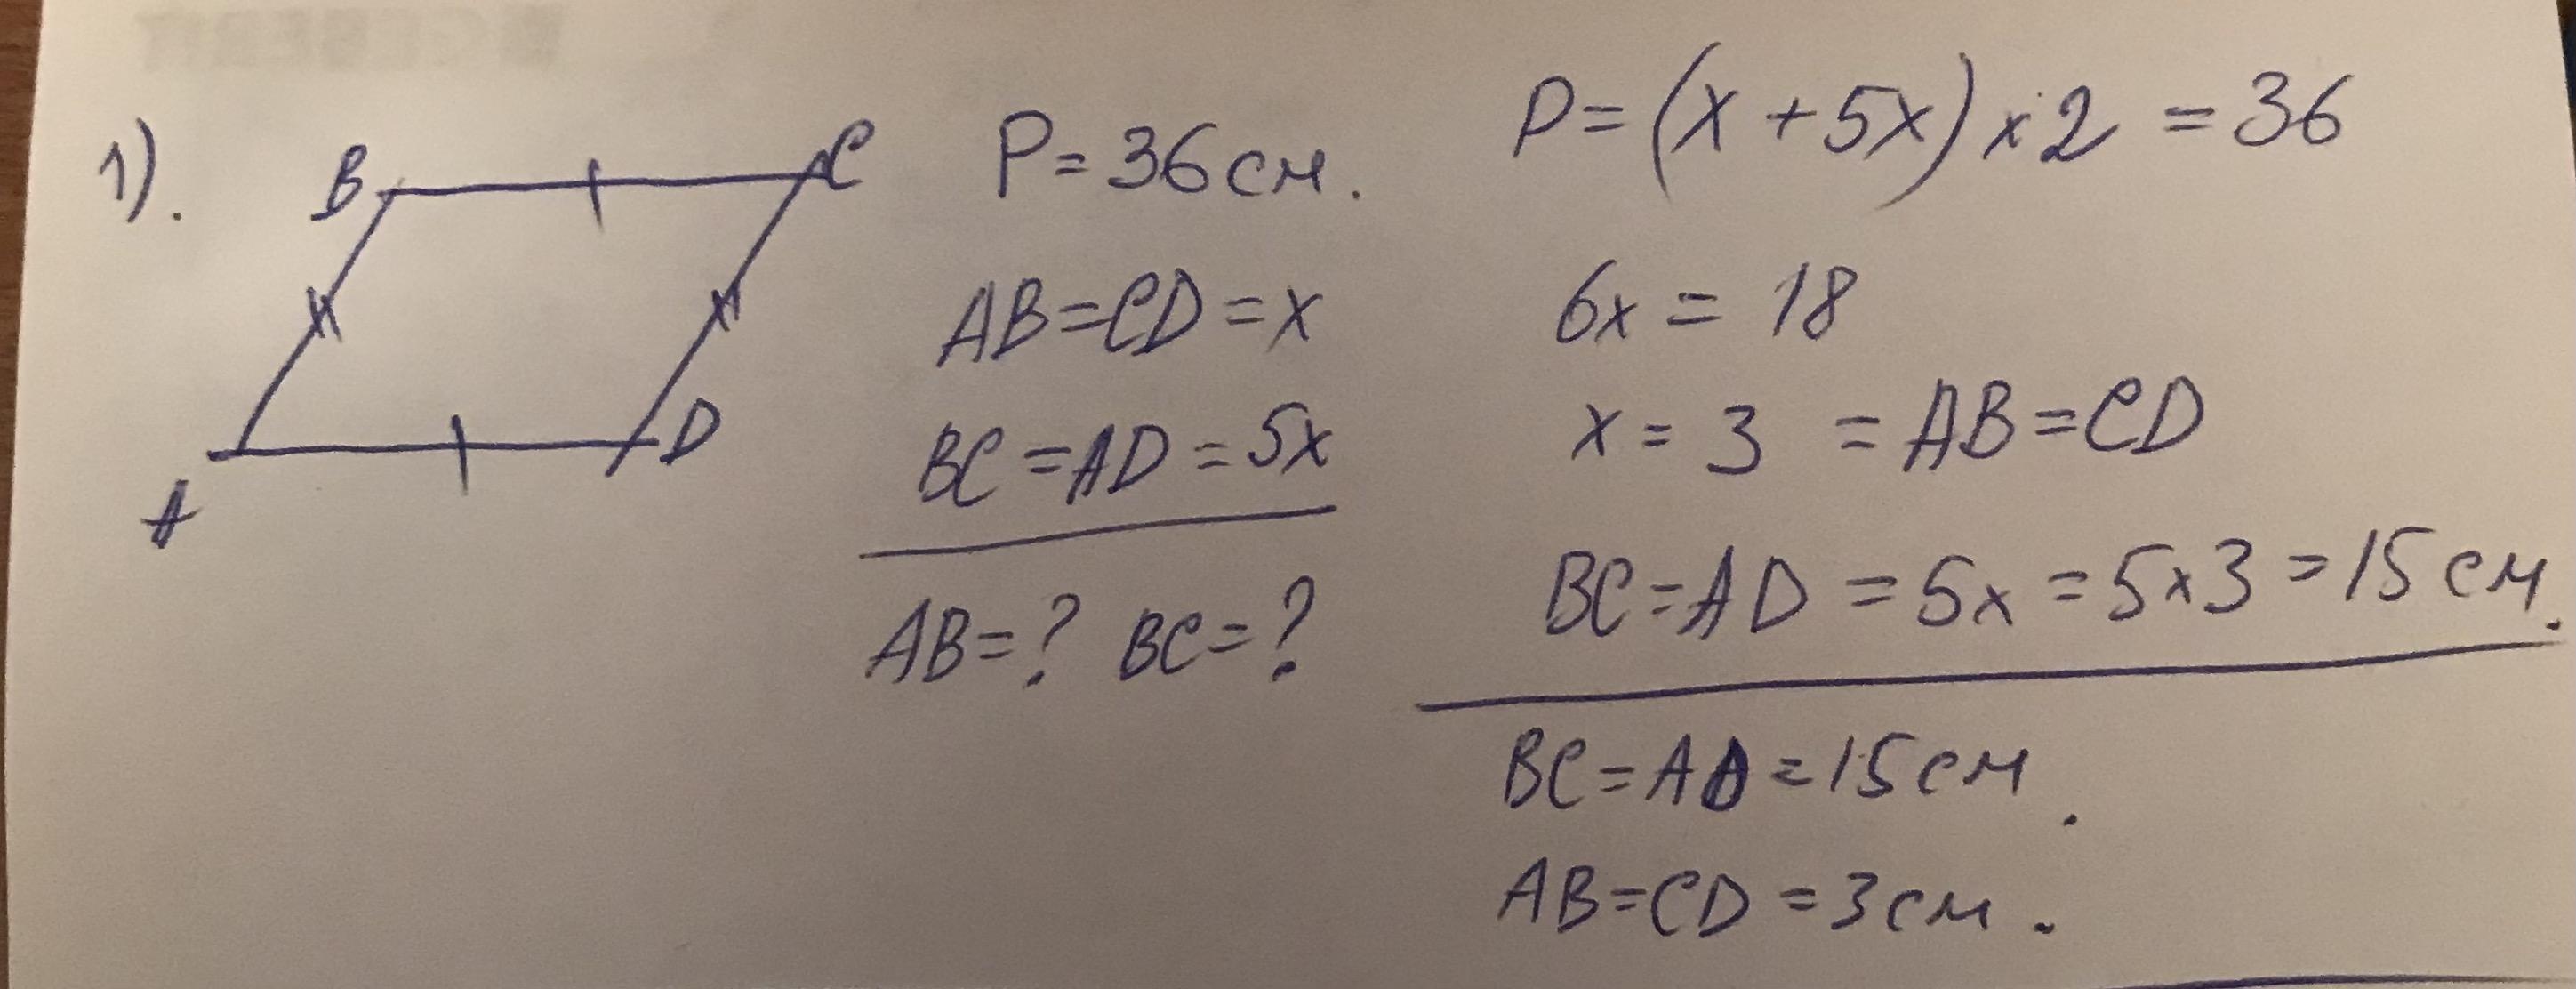 1).
B
C
A
D
P=36см.
AB=CD=x
BC=AD=5x
AB=? BC=?
P=(x+5x)×2=36
6x=18
x=3=AB=CD
BC=AD=5x=5×3=15см.
BC=AD=15см.
AB=CD=3см.